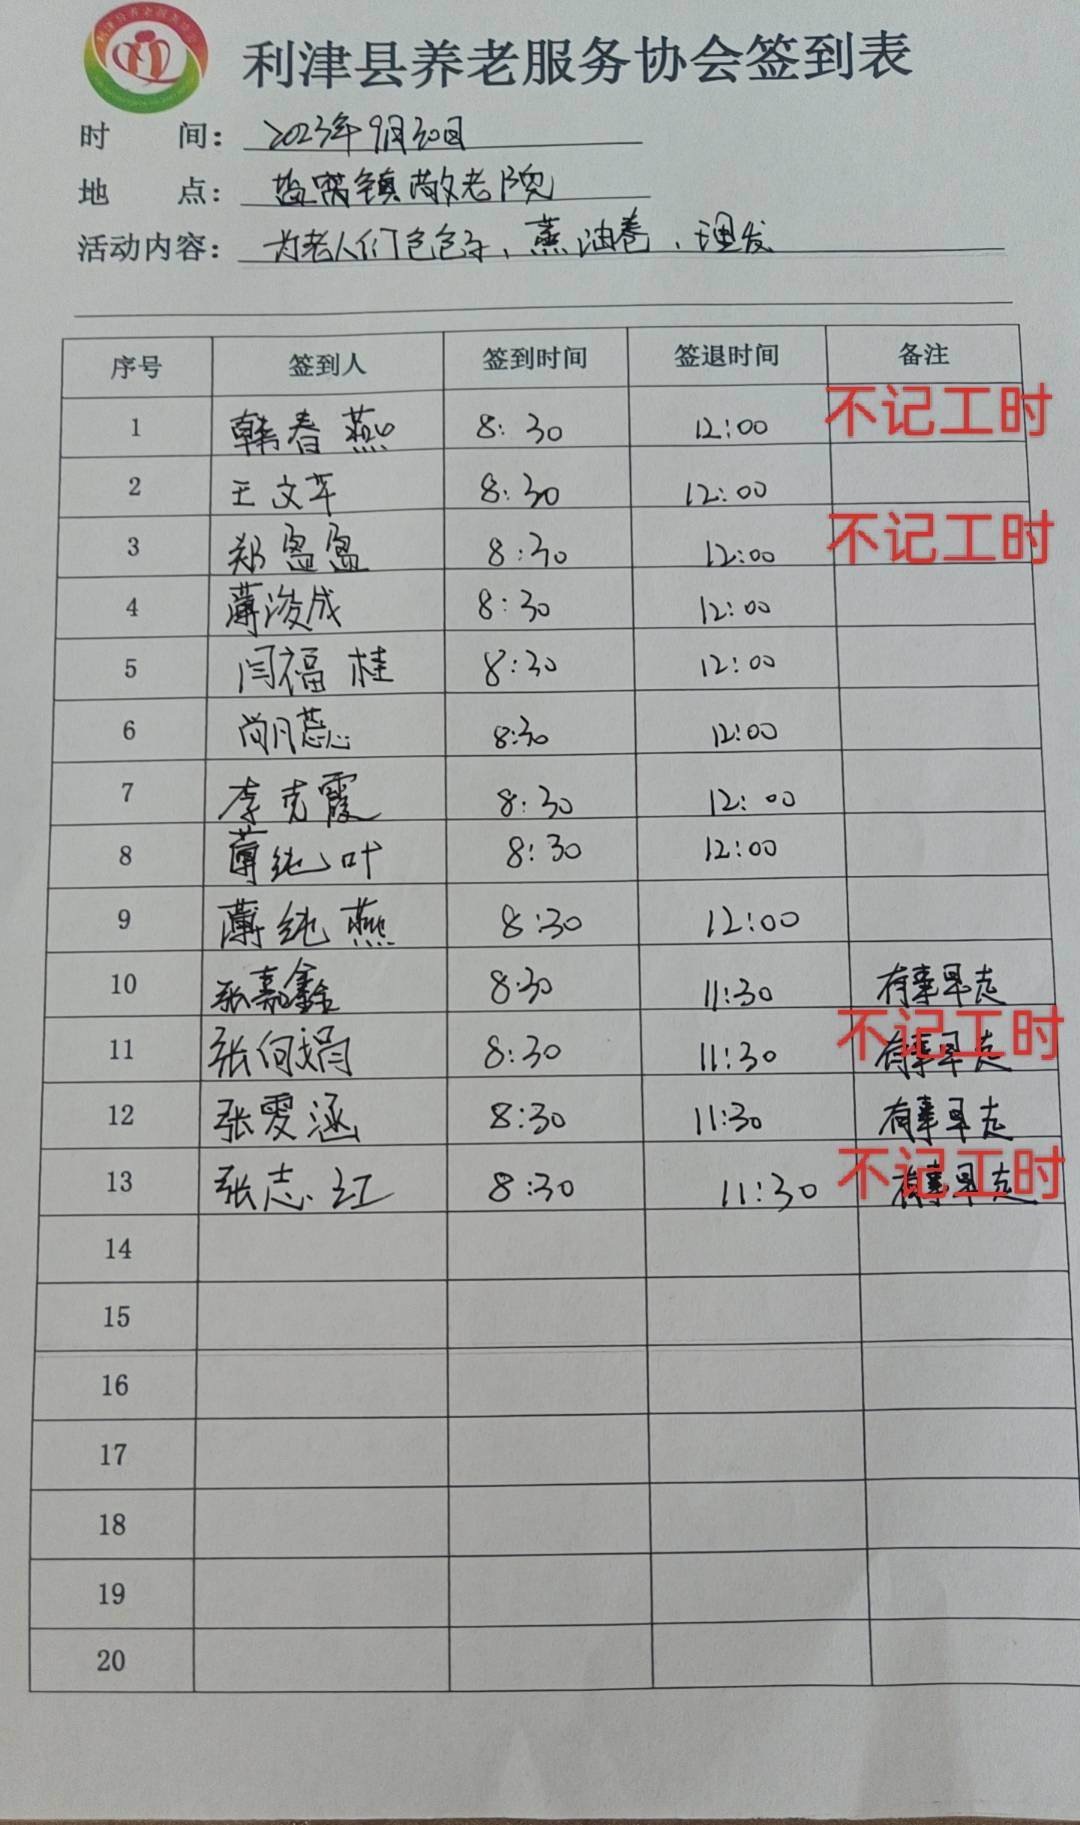 利津县养老服务协会签到表
时 间: 2023年9月30日
地 点: 盐窝镇敬老院
活动内容: 为老人们包包子、蒸油卷、理发
序号 签到人 签到时间 签退时间 备注
1 韩春燕 8:30 12:00 不记工时
2 王文苹 8:30 12:00
3 郑盈盈 8:30 12:00 不记工时
4 薄浚成 8:30 12:00
5 闫福桂 8:30 12:00
6 尚月蕊 8:30 12:00
7 李克霞 8:30 12:00
8 薄纯叶 8:30 12:00
9 薄纯燕 8:30 12:00
10 张嘉鑫 8:30 11:30 有事早走
11 张向娟 8:30 11:30 有事早走 不记工时
12 张雯涵 8:30 11:30 有事早走
13 张志红 8:30 11:30 有事早走 不记工时
14
15
16
17
18
19
20